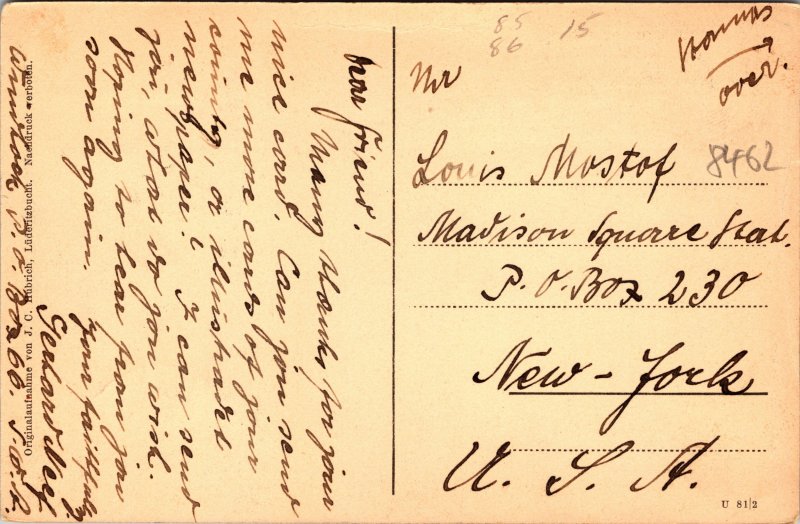 Dear Friend!
Many thanks for your
nice card. Can you send
me more cards of your
country, or illustradet
newspaper? I can send
you, what do you wish.
Hoping to hear from you
soon again.
Your faithfully
Gerhard Neef.
P. O. Box 66. S. W. A.
Originalaufnahme von J. C. Hubrich, Lüderitzbucht. Nachdruck verboten.
85 15
86
over.
Mr
Louis Mostof
8462
Madison Square Stat.
P. O. Box 230
New-York
U. S. A.
U 81/2